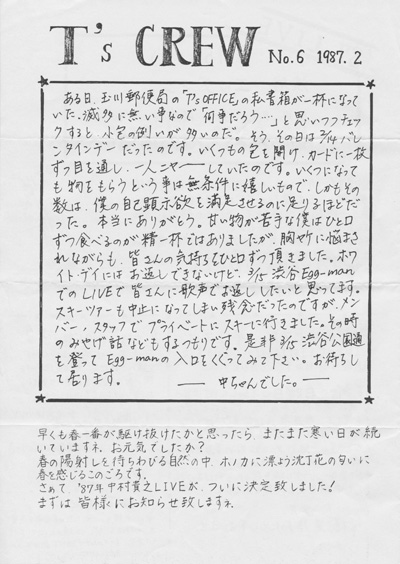 T's CREW No.6 1987.2
ある日、玉川郵便局の「T's OFFICE」の私書箱が一杯になって
いた。滅多に無い事なので「何事だろう…」と思いつつチェッ
クすると、小包の倒いが多いのだ。そう、その日は2/14バレ
ンタインデーだったのです。いくつもの包を開け、カードに一枚
ずつ目を通し、一人ニヤーーしていたのです。いくつになって
も物をもらうという事は無条件に嬉しいもので、しかもその
数は、僕の自己顕示欲を満足させるのに足りるほどだ
った。本当にありがとう。甘い物が苦手な僕はひと口
ずつ食べるのが精一杯ではありましたが、胸やけに悩まさ
れながらも、皆さんの気持ちをひと口ずつ頂きました。ホワ
イト・デイにはお返しできないけど、3/15 渋谷Egg-man
でのLIVEで皆さんに歌声でお返ししたいと思ってます。
スキーツアーも中止になってしまい残念だったのですが、メン
バー,スタッフでプライベートにスキーに行きました。その時
のみやげ話などもするつもりです。是非3/15 渋谷公園通
を登ってEgg-manの入口をくぐってみて下さい。お待ちし
て居ります。 ——中ちゃんでした。——
早くも春一番が駆け抜けたかと思ったら、またまた寒い日が続
いていますネ。お元気でしたか?
春の陽射しを待ちわびる自然の中、ホノカに漂よう沈丁花の匂いに
春を感じるこのごろです。
さぁて、'87年中村貴之LIVEが、ついに決定致しました!
まずは皆様にお知らせ致しますネ。